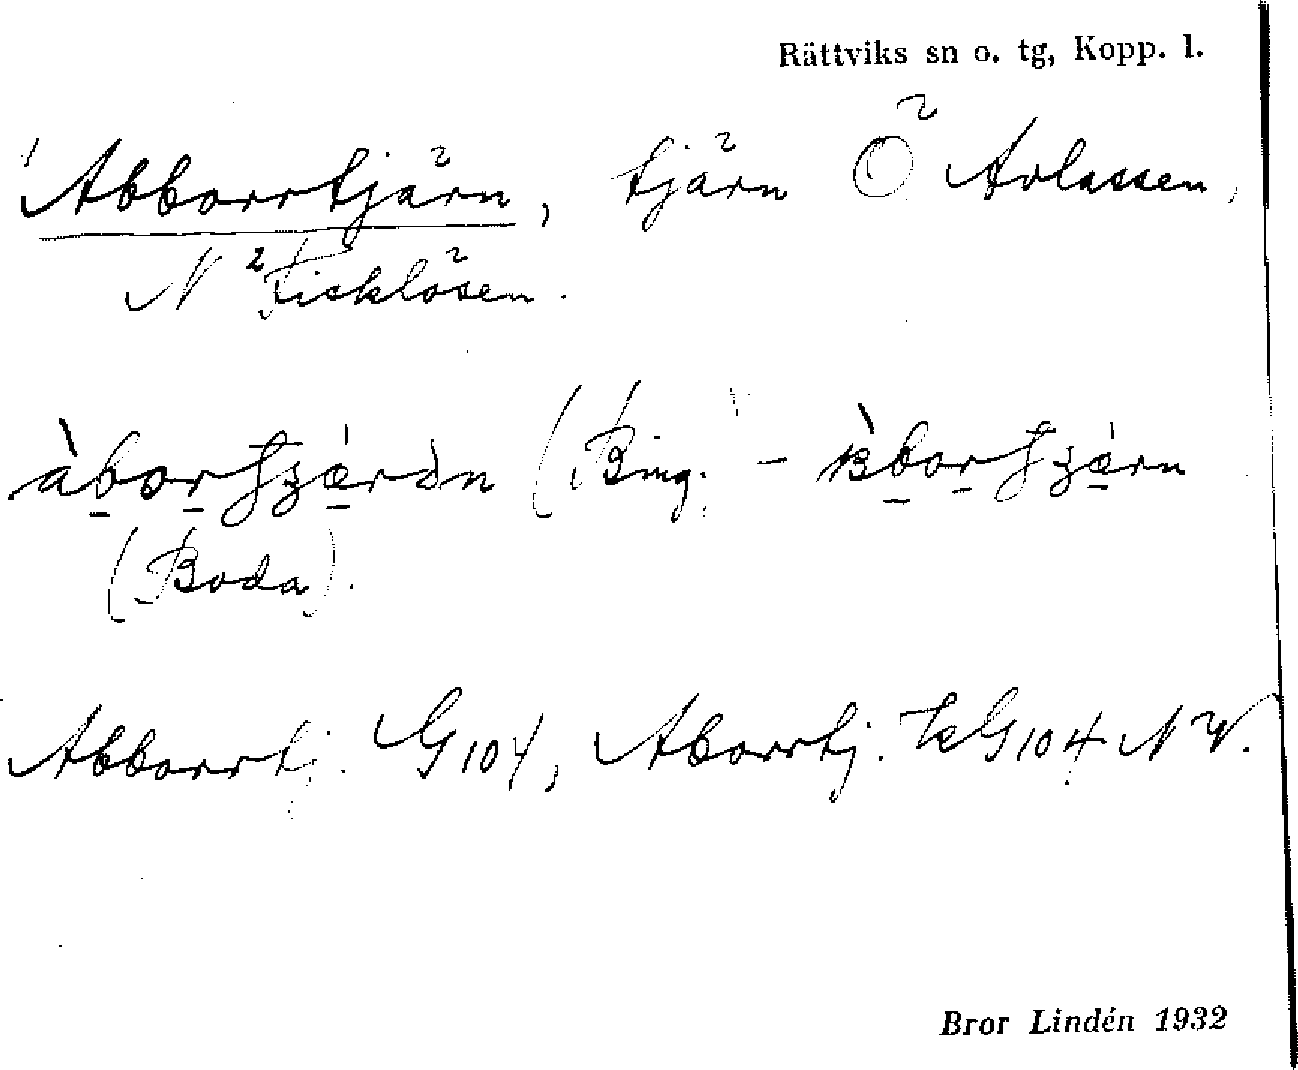 Rättviks sn o. tg, Kopp. l.
Abborrtjärn, tjärn Ö Arlassen,
N Fisklösen.
(Bing. –
(Boda).
Abborrtj. G104, Aborrtj. G104 NV.
Bror Lindén 1932